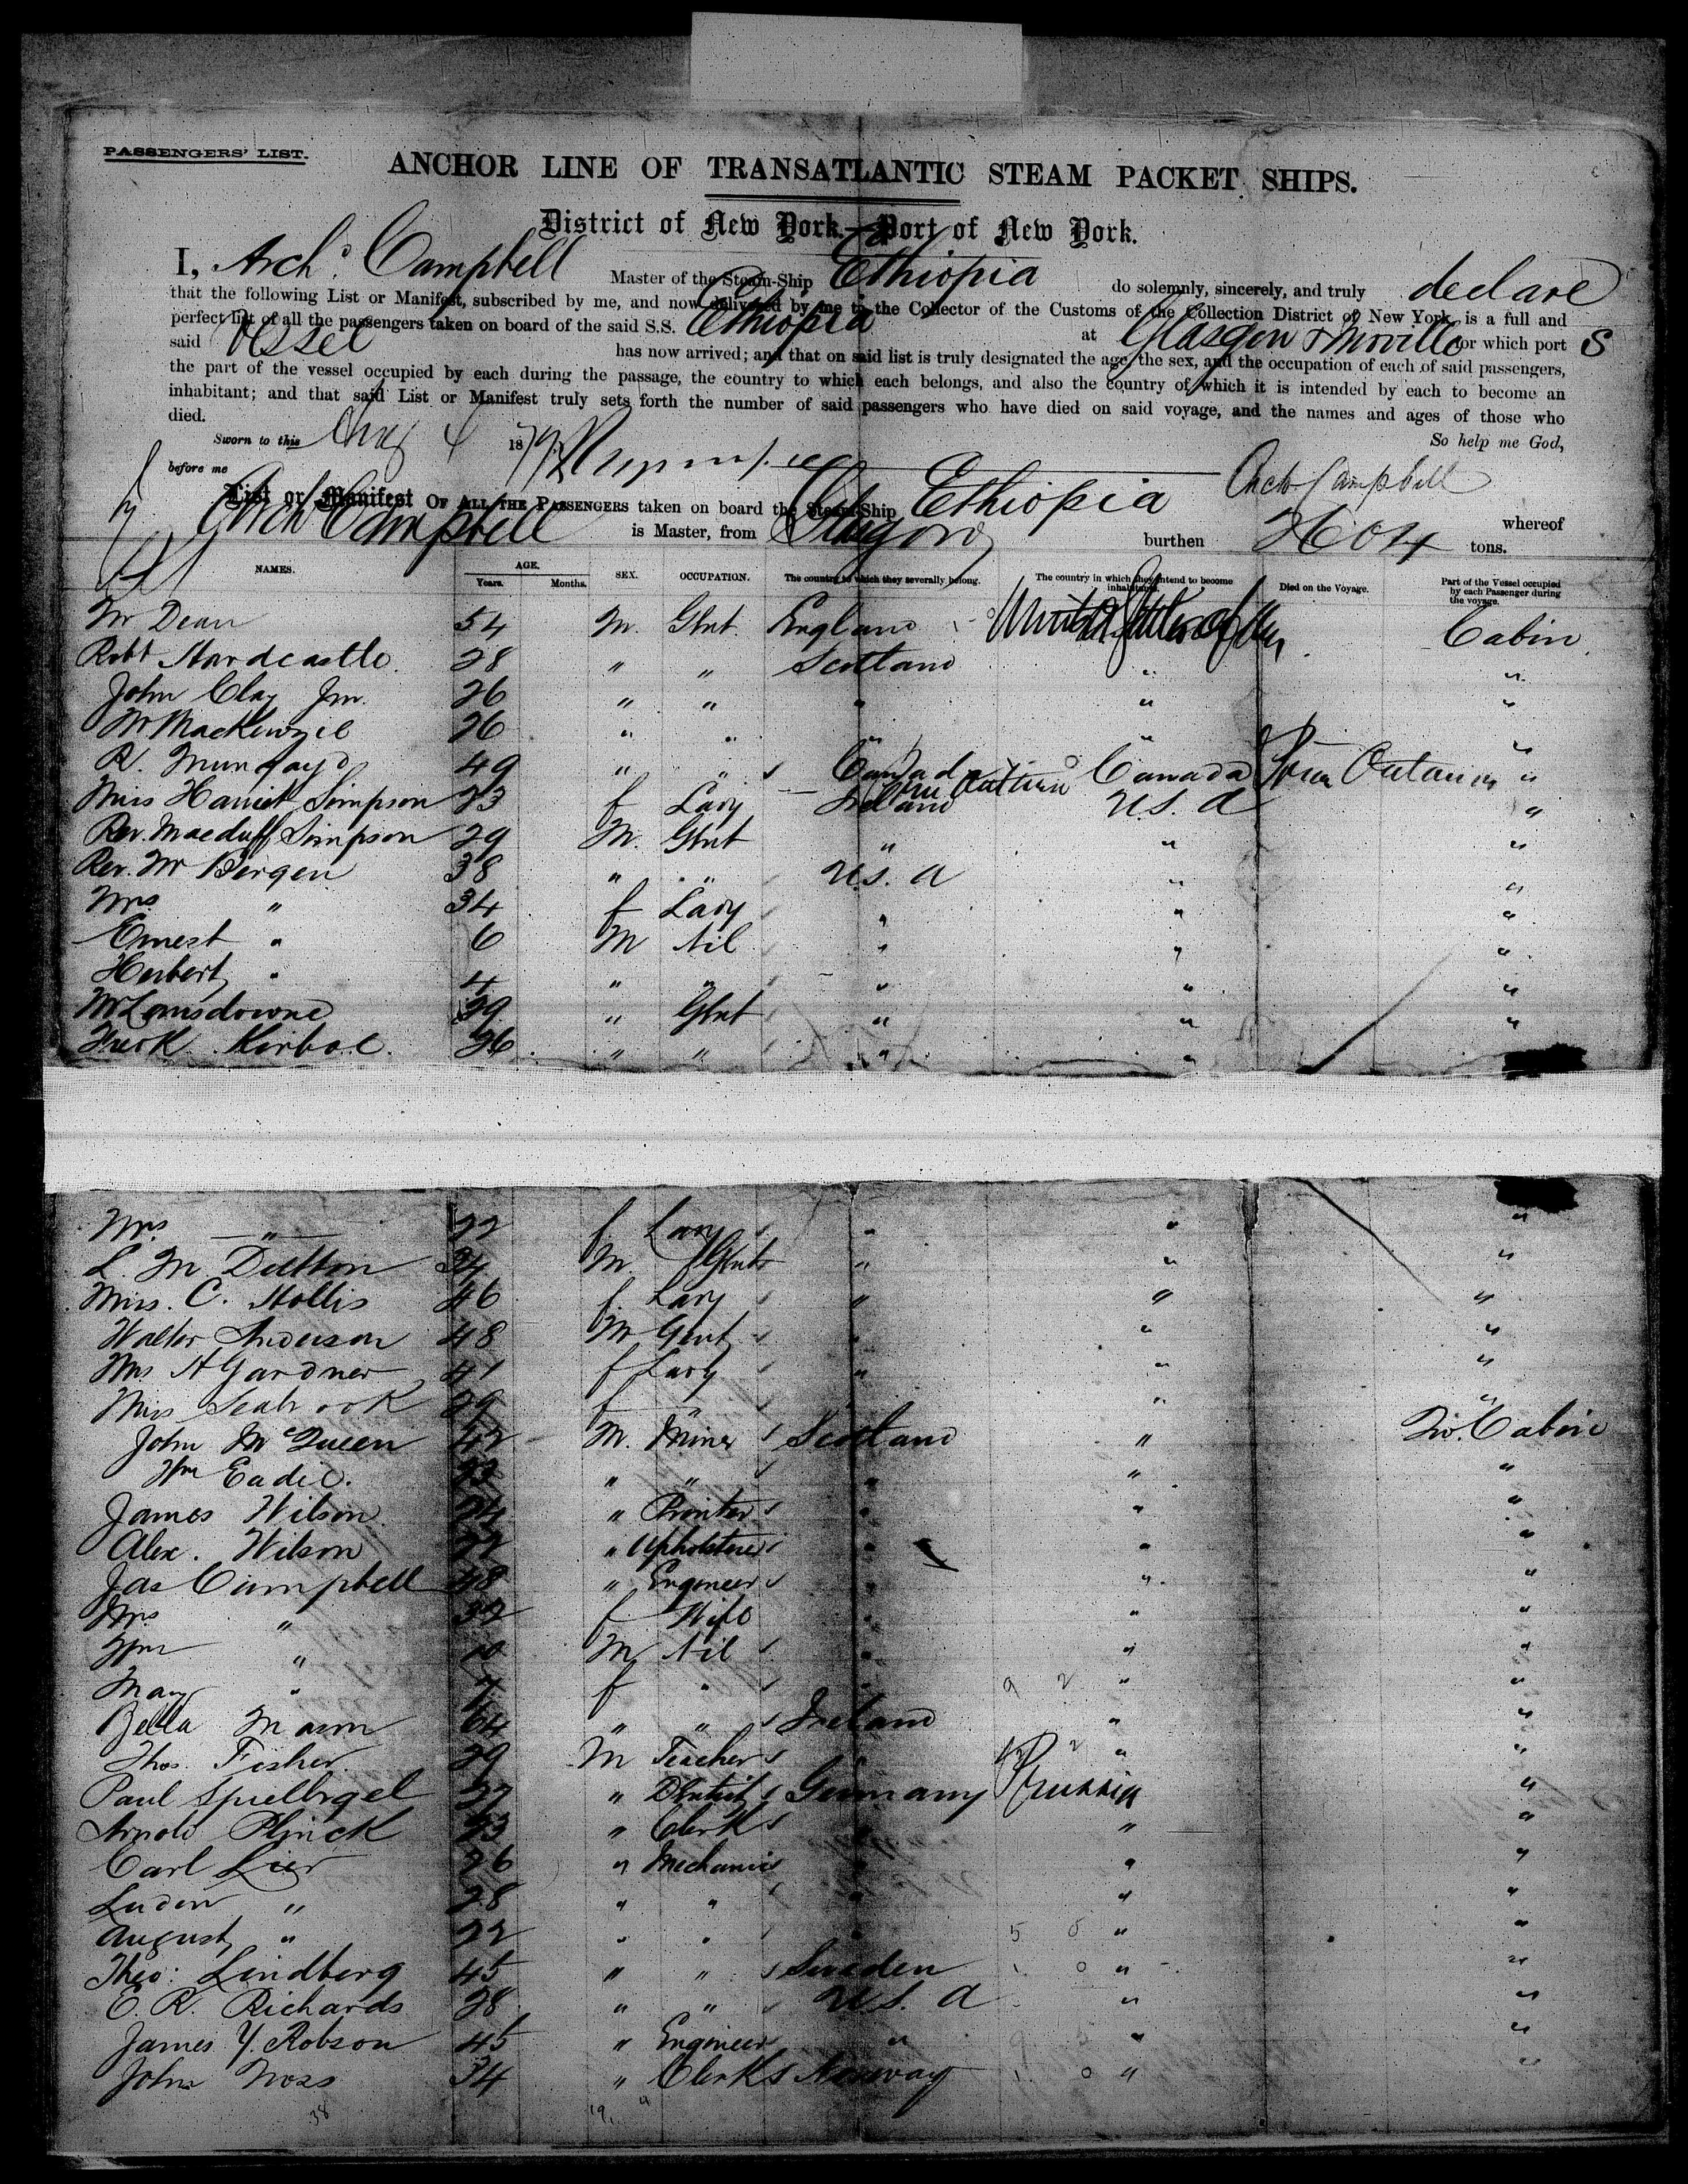 PASSENGERS' LIST.
ANCHOR LINE OF TRANSATLANTIC STEAM PACKET SHIPS.
District of New York.—Port of New York.
I, Archd. Campbell Master of the Steam-Ship Ethiopia do solemnly, sincerely, and truly declare
that the following List or Manifest, subscribed by me, and now delivered by me to the Collector of the Customs of the Collection District of New York, is a full and
perfect list of all the passengers taken on board of the said S.S. Ethiopia at Glasgow & Moville for which port S
said Vessel has now arrived; and that on said list is truly designated the age, the sex, and the occupation of each of said passengers,
the part of the vessel occupied by each during the passage, the country to which each belongs, and also the country of which it is intended by each to become an
inhabitant; and that said List or Manifest truly sets forth the number of said passengers who have died on said voyage, and the names and ages of those who
died.
So help me God,
Sworn to this Aug 4 1879
before me
Arch Campbell
List or Manifest OF ALL THE PASSENGERS taken on board the Steam-Ship Ethiopia whereof
Arch Campbell is Master, from Glasgow burthen tons.
NAMES. AGE. SEX. OCCUPATION. The country to which they severally belong. The country in which they intend to become inhabitants. Died on the Voyage. Part of the Vessel occupied by each Passenger during the voyage.
Years. Months.
Mr Dean 54 M. Gent. England United States of Am Cabin
Robt Hardcastle. 28 " " Scotland " "
John Clay Jnr. 26 " " " " "
Mr MacKenzie 26 " " " " "
R. Munro 49 " " Canada Canada "
Miss Harriet Simpson 23 f Lady Ireland U.S. A "
Rev. Macduff Simpson 29 M. Gent " " "
Rev. Mr Bergen 38 " " U.S. A " "
Mrs " 34 f Lady " " "
Ernest " 6 M Nil " " "
Herbert " 4 " " " " "
Mr Lansdowne 29 " Gent " " "
Fredk. 26 " " " "
Mrs — " — 22 f. Lady " " "
L. M. Dutton 34 M. Gent " " "
Miss. C. Hollis 46 f. Lady " " "
Walter Anderson 48 M Gent " " "
Mrs A Gardner 41 f Lady " " "
Miss Seabrook 29 f " " " "
John McQueen 42 M. Miner Scotland " Int. Cabin
Wm Eadie. 23 " " " " "
James Wilson 24 " Printer " " "
Alex. Wilson 22 " Upholsterer " " "
Jas Campbell 48 " Engineer " " "
Mrs " 32 f Wife " " "
Wm " 10 M Nil " " "
Mary " 7 f " " 9 2 " "
Bella Mason 64 " " Ireland " "
Thos. Fisher. 29 M Teacher " 2 " "
Paul Spielbrgel 27 " Dentist Germany Prussia "
Arnold Plinck 23 " Clerk " " "
Carl Lier 26 " Mechanic " " "
" 28 " " " " "
August " 22 " " " 5 " "
Theo: Lindberg 45 " " Sweden 1 0 " "
E. R. Richards 28 " " U.S. A " "
James Y. Robson 45 " Engineer " " "
John Noss 34 " Clerk Norway 1 0 " "
38